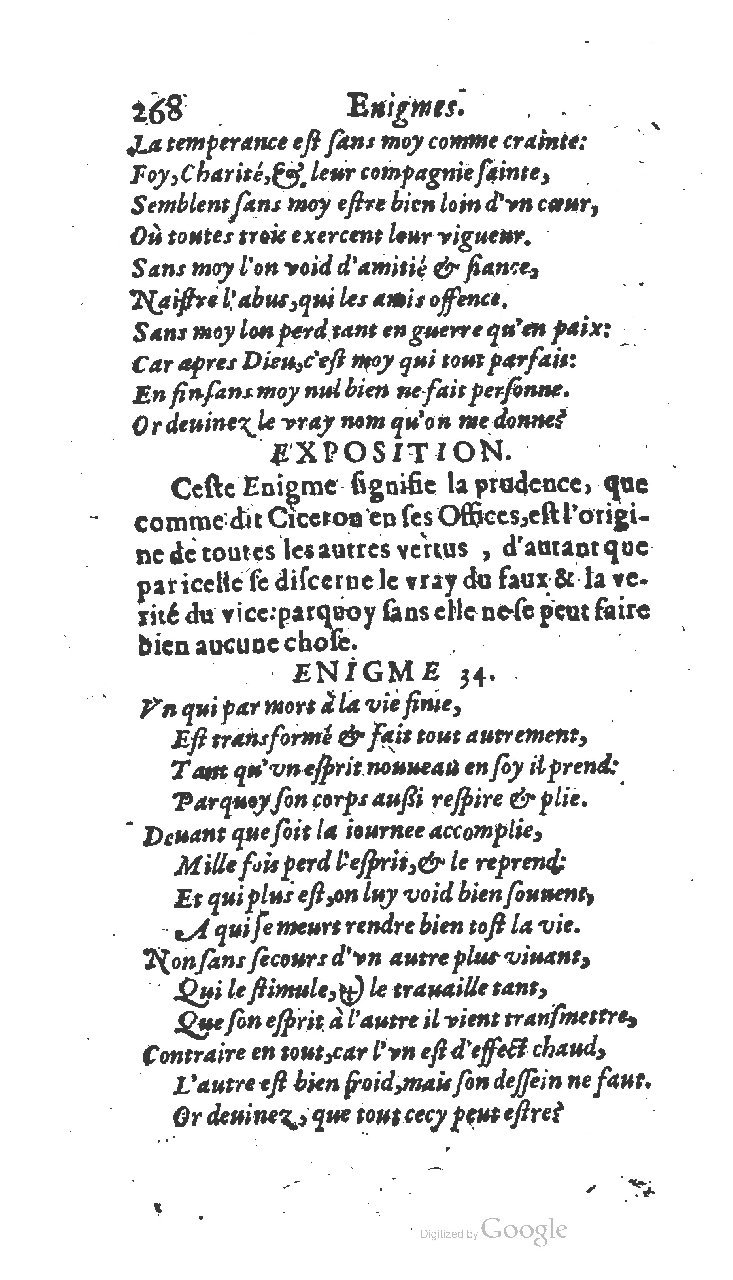 268 Enigmes.
La temperance eſt ſans moy comme crainte:
Foy, Charité, & leur compagnie ſainte,
Semblent ſans moy eſtre bien loin d'vn cœur,
Où toutes trois exercent leur vigueur.
Sans moy l'on void d'amitié & fiance,
Naiſtre l'abus, qui les amis offence.
Sans moy lon perd tant en guerre qu'en paix:
Car apres Dieu, c'eſt moy qui tout parfais:
En fin ſans moy nul bien ne fait perſonne.
Or deuinez le vray nom qu'on me donne?
EXPOSITION.
Ceſte Enigme ſignifie la prudence, que
comme dit Ciceron en ſes Offices, eſt l'origi-
ne de toutes les autres vertus , d'autant que
par icelle ſe diſcerne le vray du faux & la ve-
rité du vice: parquoy ſans elle ne ſe peut faire
bien aucune choſe.
ENIGME 34.
Vn qui par mort à la vie finie,
Eſt transformé & fait tout autrement,
Tant qu'vn eſprit nouueau en ſoy il prend:
Parquoy ſon corps auſſi reſpire & plie.
Deuant que ſoit la iournee accomplie,
Mille fois perd l'eſprit, & le reprend:
Et qui plus eſt, on luy void bien ſouuent,
A qui ſe meurt rendre bien toſt la vie.
Non ſans ſecours d'vn autre plus viuant,
Qui le ſtimule, & le trauaille tant,
Que ſon eſprit à l'autre il vient tranſmettre,
Contraire en tout, car l'vn eſt d'effect chaud,
L'autre eſt bien froid, mais ſon deſſein ne faut.
Or deuinez, que tout cecy peut eſtre?
Digitized by Google